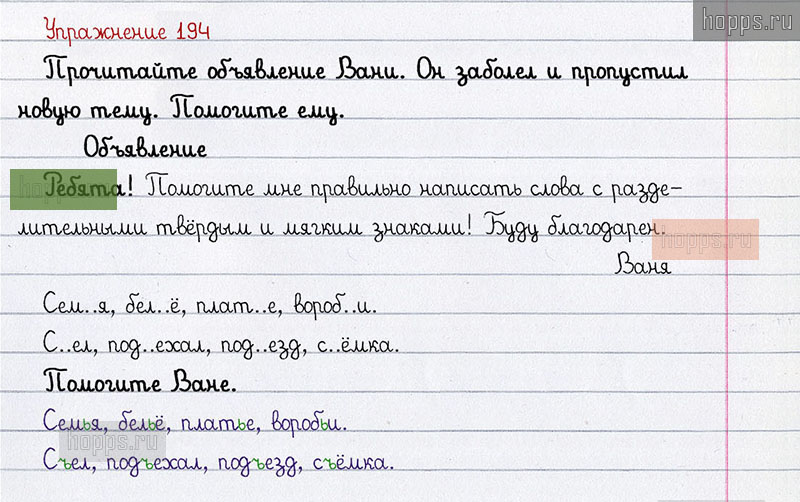 hopps.ru
Упражнение 194
Прочитайте объявление Вани. Он заболел и пропустил
новую тему. Помогите ему.
Объявление
Ребята! Помогите мне правильно написать слова с разде-
лительными твёрдым и мягким знаками! Буду благодарен.
hopps.ru
Ваня
Сем..я, бел..ё, плат..е, вороб..и.
С..ел, под..ехал, под..езд, с..ёмка.
Помогите Ване.
Семья, бельё, платье, воробьи.
hopps.ru
Съел, подъехал, подъезд, съёмка.